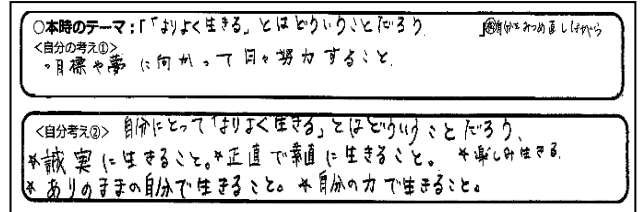 ○本時のテーマ:「「よりよく生きる」とはどういうことだろう 」㊝自分をみつめ直しながら
<自分の考え①>
・目標や夢に向かって日々努力すること
<自分考え②> 自分にとって「よりよく生きる」とはどういうことだろう、
*誠実に生きること。*正直で素直に生きること。 *楽しみ生きる。
*ありのままの自分で生きること。*自分の力で生きること。